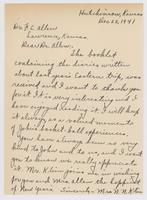 Hutchinson, Kansas
Dec. 22, 1941
Dr. F. C. Allen
Lawrence, Kansas.
Dear Dr. Allen:
The booklet
containing the diaries written
about last years Eastern trip, was
received and I want to thank you
for it. It is very interesting and I
have enjoyed reading it. I will keep
it always as a valued memento
of John's basket-ball experiences.
You have always been so very
kind to John and to us, and I want
you to know we really appreciate
it. Mr. Kline joins me in wishing
you and Mrs. Allen the happiest
of New Years. Sincerely - Mrs.